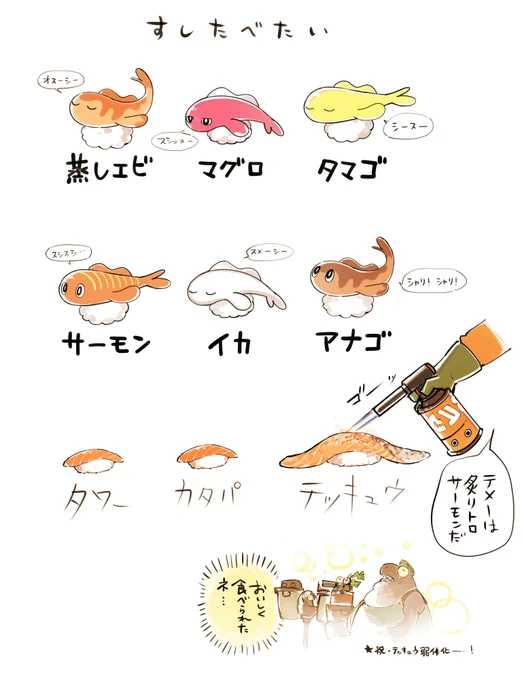 すしたべたい
オスーシー
スシッスー
シースー
蒸しエビ
マグロ
タマゴ
スシスシ…
スメーシー
シャリ!シャリ!
サーモン
イカ
アナゴ
ゴーッ
タワー
カタパ
テッキュウ
テメーは
炙りトロ
サーモンだ
おいしく
食べられた
ネ…
★祝・テッキュウ弱体化ー!